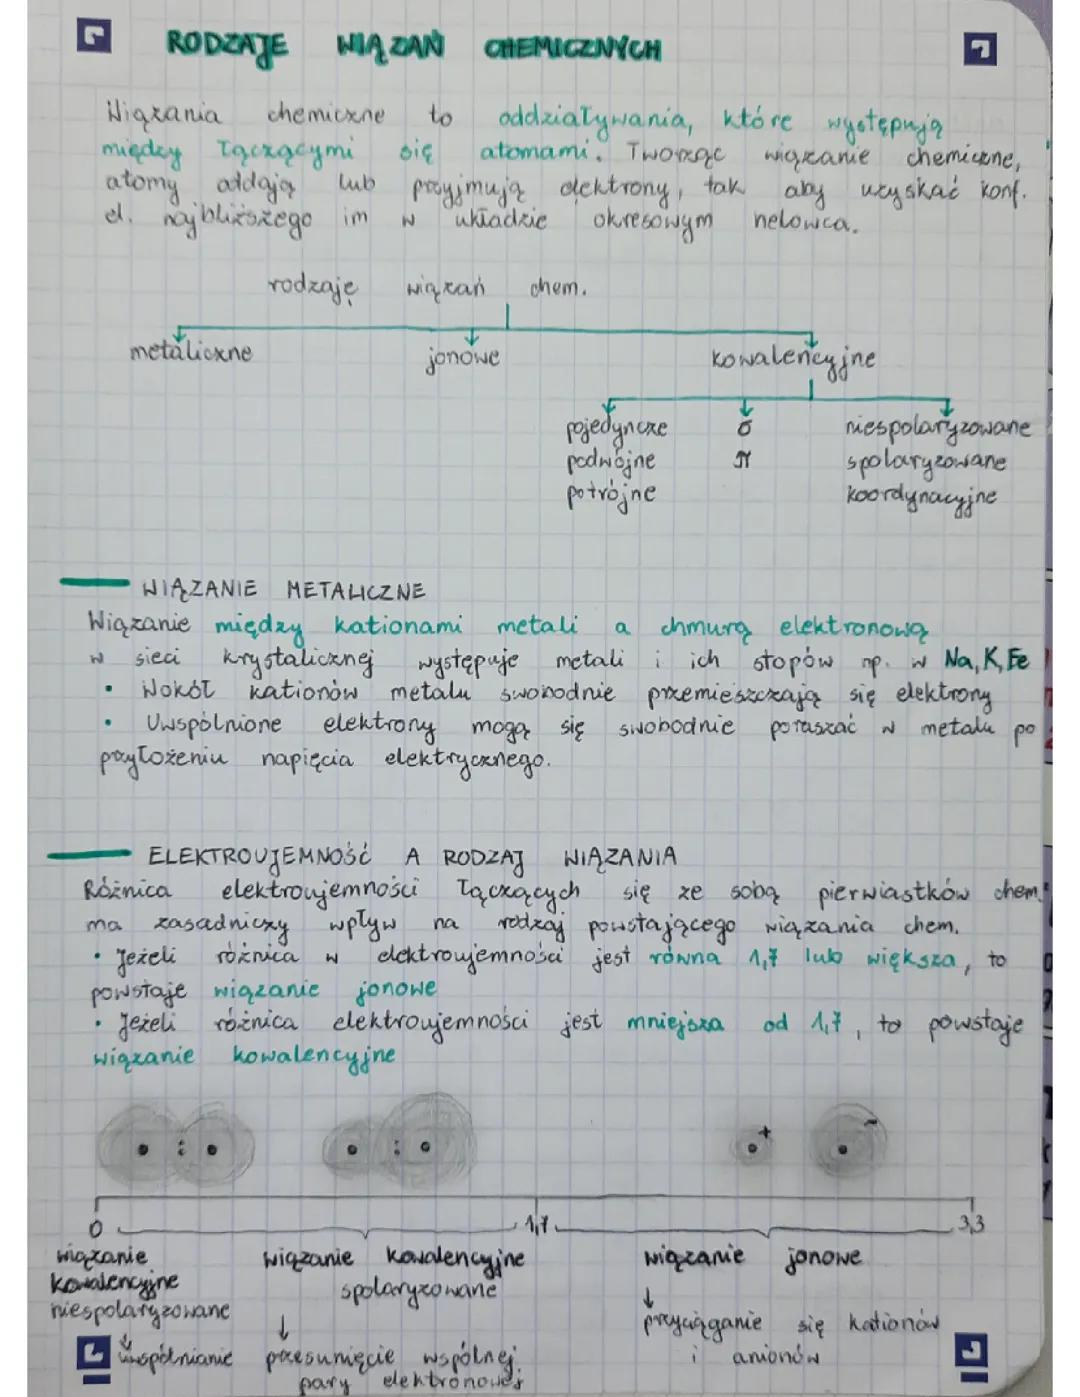 RODZAJE WIĄZAŃ CHEMICZNYCH
Wiązania chemiczne to oddziaływania, które występują
między łączącymi się atomami. Tworząc wiązanie chemiczne,
atomy oddają lub przyjmują elektrony, tak aby uzyskać konf.
el. najbliższego im w układzie okresowym helowca.
rodzaję wiązań chem.
metaliczne jonowe kowalencyjne
pojedyncze σ niespolaryzowane
podwójne π spolaryzowane
potrójne koordynacyjne
WIĄZANIE METALICZNE
Wiązanie między kationami metali a chmurą elektronową
w sieci krystalicznej występuje metali i ich stopów np. w Na, K, Fe
• Wokół kationów metalu swobodnie przemieszczają się elektrony
• Uwspólnione elektrony mogą się swobodnie poruszać w metalu po
przyłożeniu napięcia elektrycznego.
ELEKTROUJEMNOŚĆ A RODZAJ WIĄZANIA
Różnica elektroujemności łączących się ze sobą pierwiastków chem.
ma zasadniczy wpływ na rodzaj powstającego wiązania chem.
• Jeżeli różnica w elektroujemności jest równa 1,7 lub większa, to
powstaje wiązanie jonowe
• Jeżeli różnica elektroujemności jest mniejsza od 1,7, to powstaje
wiązanie kowalencyjne
+ -
0 1,7 3,3
wiązanie kowalencyjne niespolaryzowane
↓ uwspólnianie
wiązanie kowalencyjne
spolaryzowane
↓
przesunięcie wspólnej
pary elektronowej
wiązanie jonowe
↓
przyciąganie się kationów
i anionów